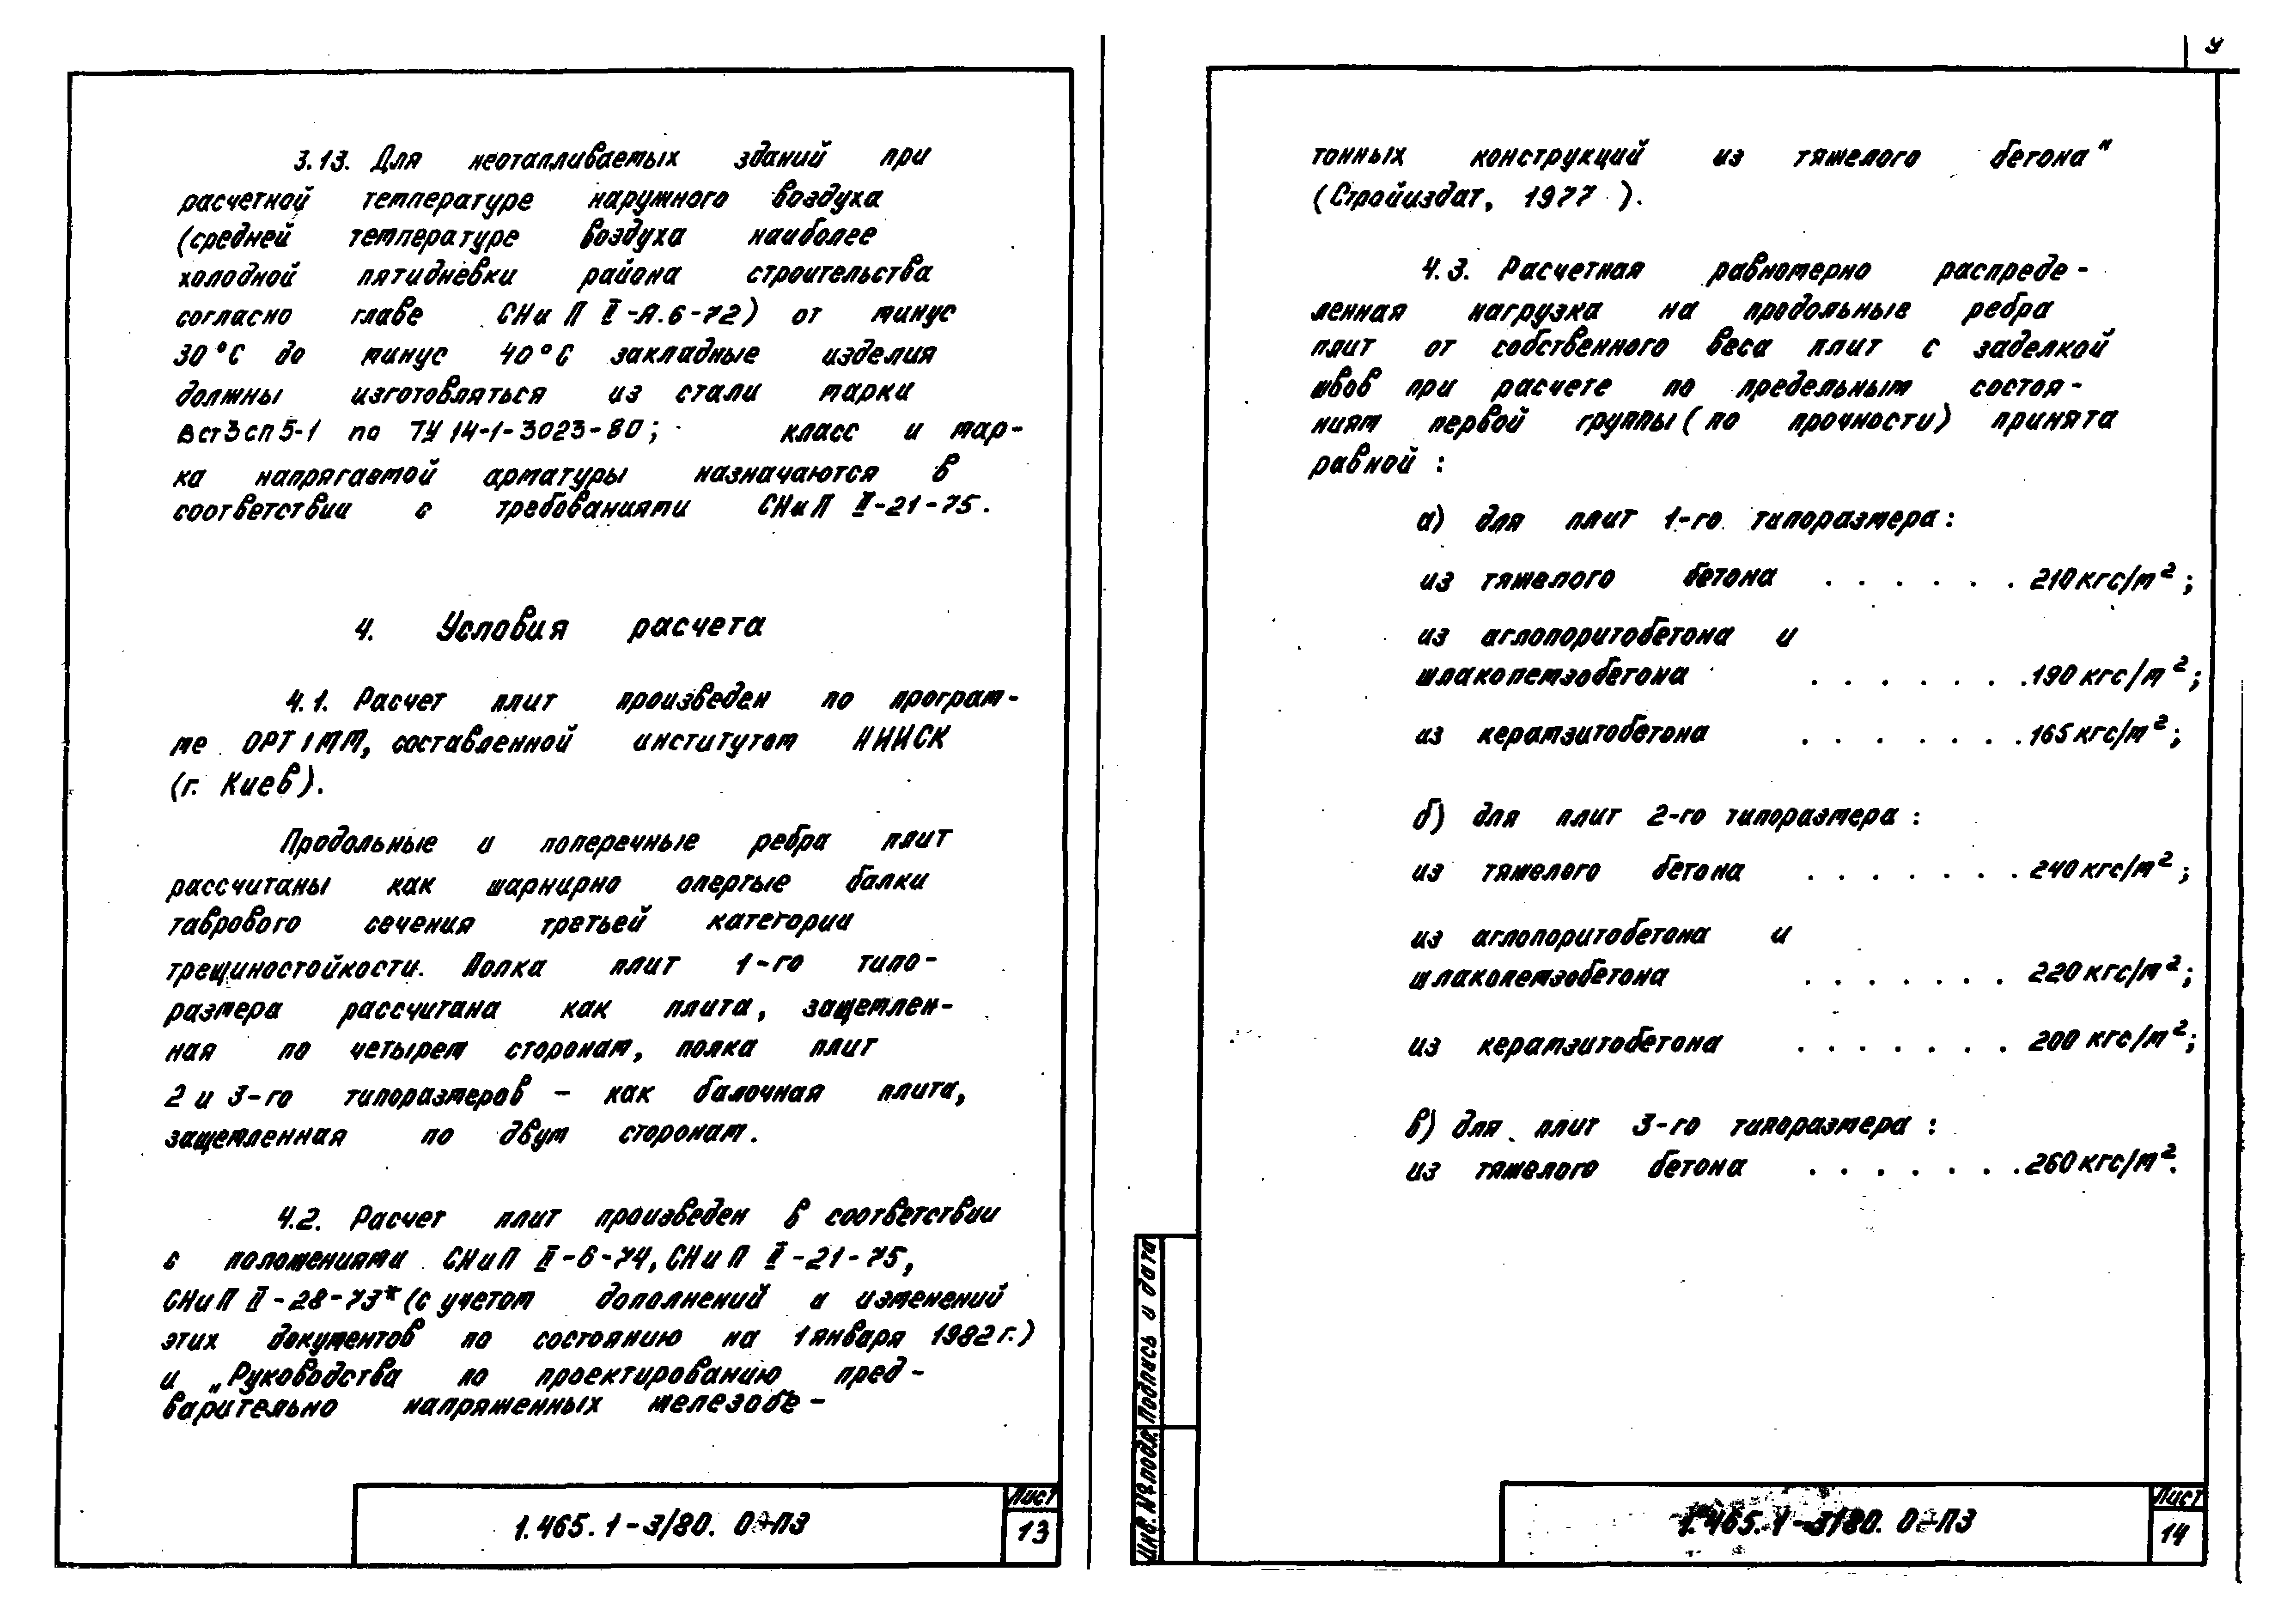 3.13. Для неотапливаемых зданий при
расчетной температуре наружного воздуха
(средней температуре воздуха наиболее
холодной пятидневки района строительства
согласно главе СНиП II-А.6-72) от минус
30°С до минус 40°С закладные изделия
должны изготовляться из стали марки
ВСт3сп5-1 по ТУ 14-1-3023-80; класс и мар-
ка напрягаемой арматуры назначаются в
соответствии с требованиями СНиП II-21-75.
4. Условия расчета
4.1. Расчет плит произведен по програм-
ме OPTIMM, составленной институтом НИИСК
(г. Киев).
Продольные и поперечные ребра плит
рассчитаны как шарнирно опертые балки
таврового сечения третьей категории
трещиностойкости. Полка плит 1-го типо-
размера рассчитана как плита, защемлен-
ная по четырем сторонам, полка плит
2 и 3-го типоразмеров – как балочная плита,
защемленная по двум сторонам.
4.2. Расчет плит произведен в соответствии
с положениями СНиП II-6-74, СНиП II-21-75,
СНиП II-28-73* (с учетом дополнений и изменений
этих документов по состоянию на 1 января 1982 г.)
и „Руководства по проектированию пред-
варительно напряженных железобе-
1.465.1-3/80. 0-ПЗ
Лист
13
9
тонных конструкций из тяжелого бетона"
(Стройиздат, 1977).
4.3. Расчетная равномерно распреде-
ленная нагрузка на продольные ребра
плит от собственного веса плит с заделкой
швов при расчете по предельным состоя-
ниям первой группы (по прочности) принята
равной :
а) для плит 1-го типоразмера:
из тяжелого бетона . . . . . . 210 кгс/м²;
из аглопоритобетона и
шлакопемзобетона . . . . . . . 190 кгс/м²;
из керамзитобетона . . . . . . . 165 кгс/м²;
б) для плит 2-го типоразмера :
из тяжелого бетона . . . . . . . 240 кгс/м²;
из аглопоритобетона и
шлакопемзобетона . . . . . . . 220 кгс/м²;
из керамзитобетона . . . . . . . 200 кгс/м²;
в) для плит 3-го типоразмера :
из тяжелого бетона . . . . . . . 260 кгс/м².
Подпись и дата
Инв. № подл.
1.465.1-3/80. 0-ПЗ
Лист
14